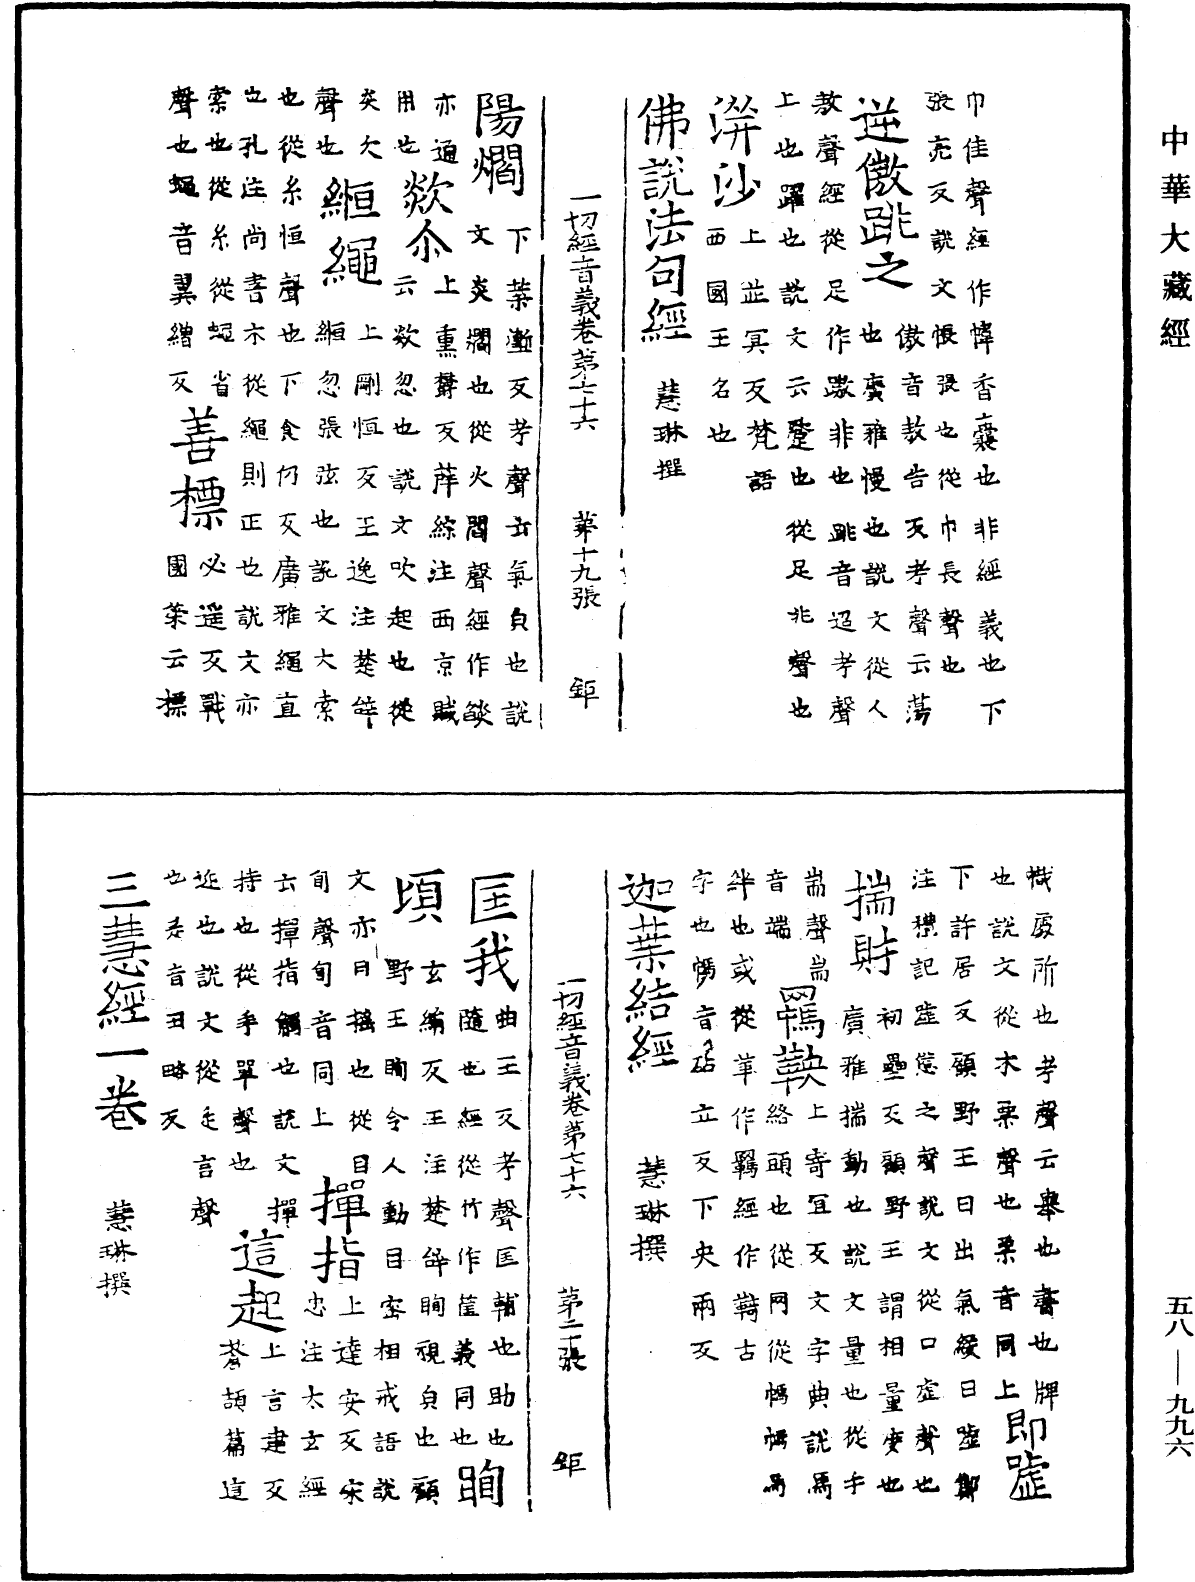 中華大藏經
巾佳聲經作幃香囊也非經義也下
張亮反說文帳張也從巾長聲也
逆傲跳之 傲音敖告反考聲云蕩
也廣雅慢也說文從人
敖聲經從足作𨅊非也跳音迢考聲
上也躍也說文云蹷也從足兆聲也
洴沙 上並冥反梵語
西國王名也
佛說法句經 慧琳撰
一切經音義卷第七十六 第十九張 鉅
陽爓 下葉漸反考聲云氣皃也說
文炎爓也從火閻聲經作焰
亦通
欻尒 上熏欝反薛綜注西京賦
云欻忽也說文吹起也從
炎欠
聲也
縆繩 上剛恒反王逸注楚辭
縆忽張弦也說文大索
也從糸恒聲也下食仍反廣雅繩直
也孔注尚書木從繩則正也說文亦
索也從糸從蝇省
聲也蝇音翼繒反
善標 必遥反戰
國策云標
幟處所也考聲云舉也書也牌
也說文從木票聲也票音同上
即噓
下許居反顧野王曰出氣緩曰噓鄭
注禮記噓悲之聲說文從口虛聲也
揣財 初壘反顧野王謂相量度也
廣雅揣動也說文量也從手
耑聲耑
音端
羈鞅 上寄宜反文字典說馬
絡頭也從网從䩭䩭馬
絆也或從革作羈經作鞿古
字也䩭音砧立反下央兩反
迦葉結經 慧琳撰
一切經音義卷第七十六 第二十張 鉅
匡我 曲王反考聲匡輔也助也
隨也經從竹作筐義同也
眴
頃 玄絢反王注楚辭眴視皃也顧
野王眴令人動目密相戒語說
文亦曰搖也從目
旬聲旬音同上
撣指 上達安反宋
忠注太玄經
云撣指觸也說文撣
持也從手單聲也
這起 上言建反
蒼頡篇這
迎也說文從辵言聲
也辵音丑略反
三慧經一卷 慧琳撰
五八—九九六